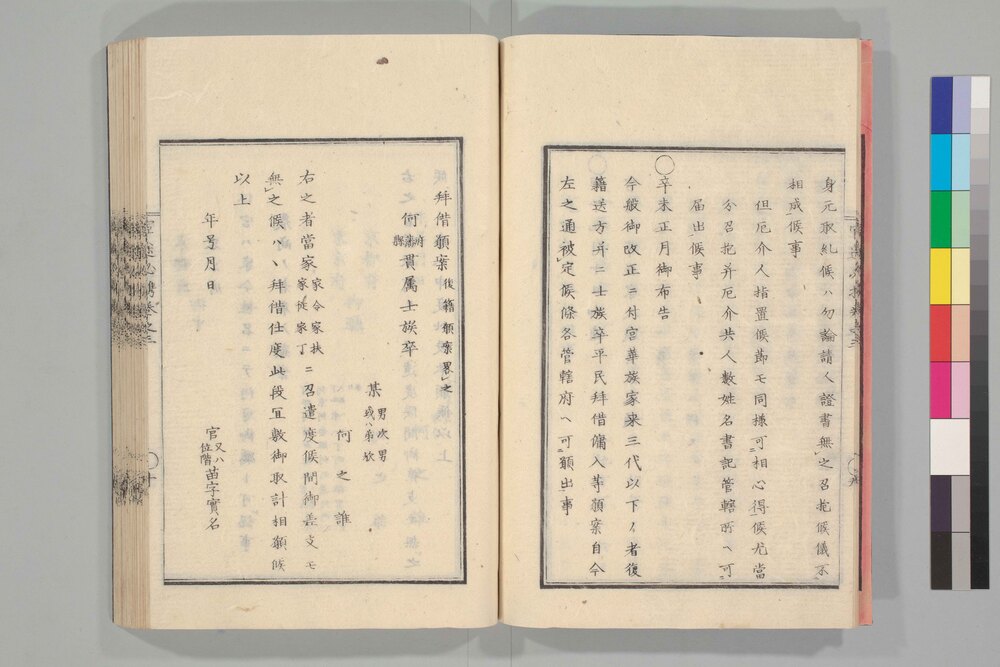 身元取糺候ハ勿論請人證書無之召抱候儀不
相成候事
但厄介人指置候節モ同様可相心得候尤當
分召抱并厄介共人數姓名書記管轄所ヘ可
届出候事
〇辛未正月御布告
今般御改正ニ付宮華族家来三代以下ノ者復
籍送方并ニ士族卒平民拜借傭入等願案自今
左之通被定候條各管轄府ヘ可願出事
拜借願案後籍願案畧之
何府藩縣貫属士族卒
某男次男或ハ弟欤
何之誰
右之者當家家令家扶家従家丁ニ召遣度候間御差支モ
無之候ハヽ拜借仕度此段宜敷御取計相願候
以上
年号月日
官又ハ位階苗字實名